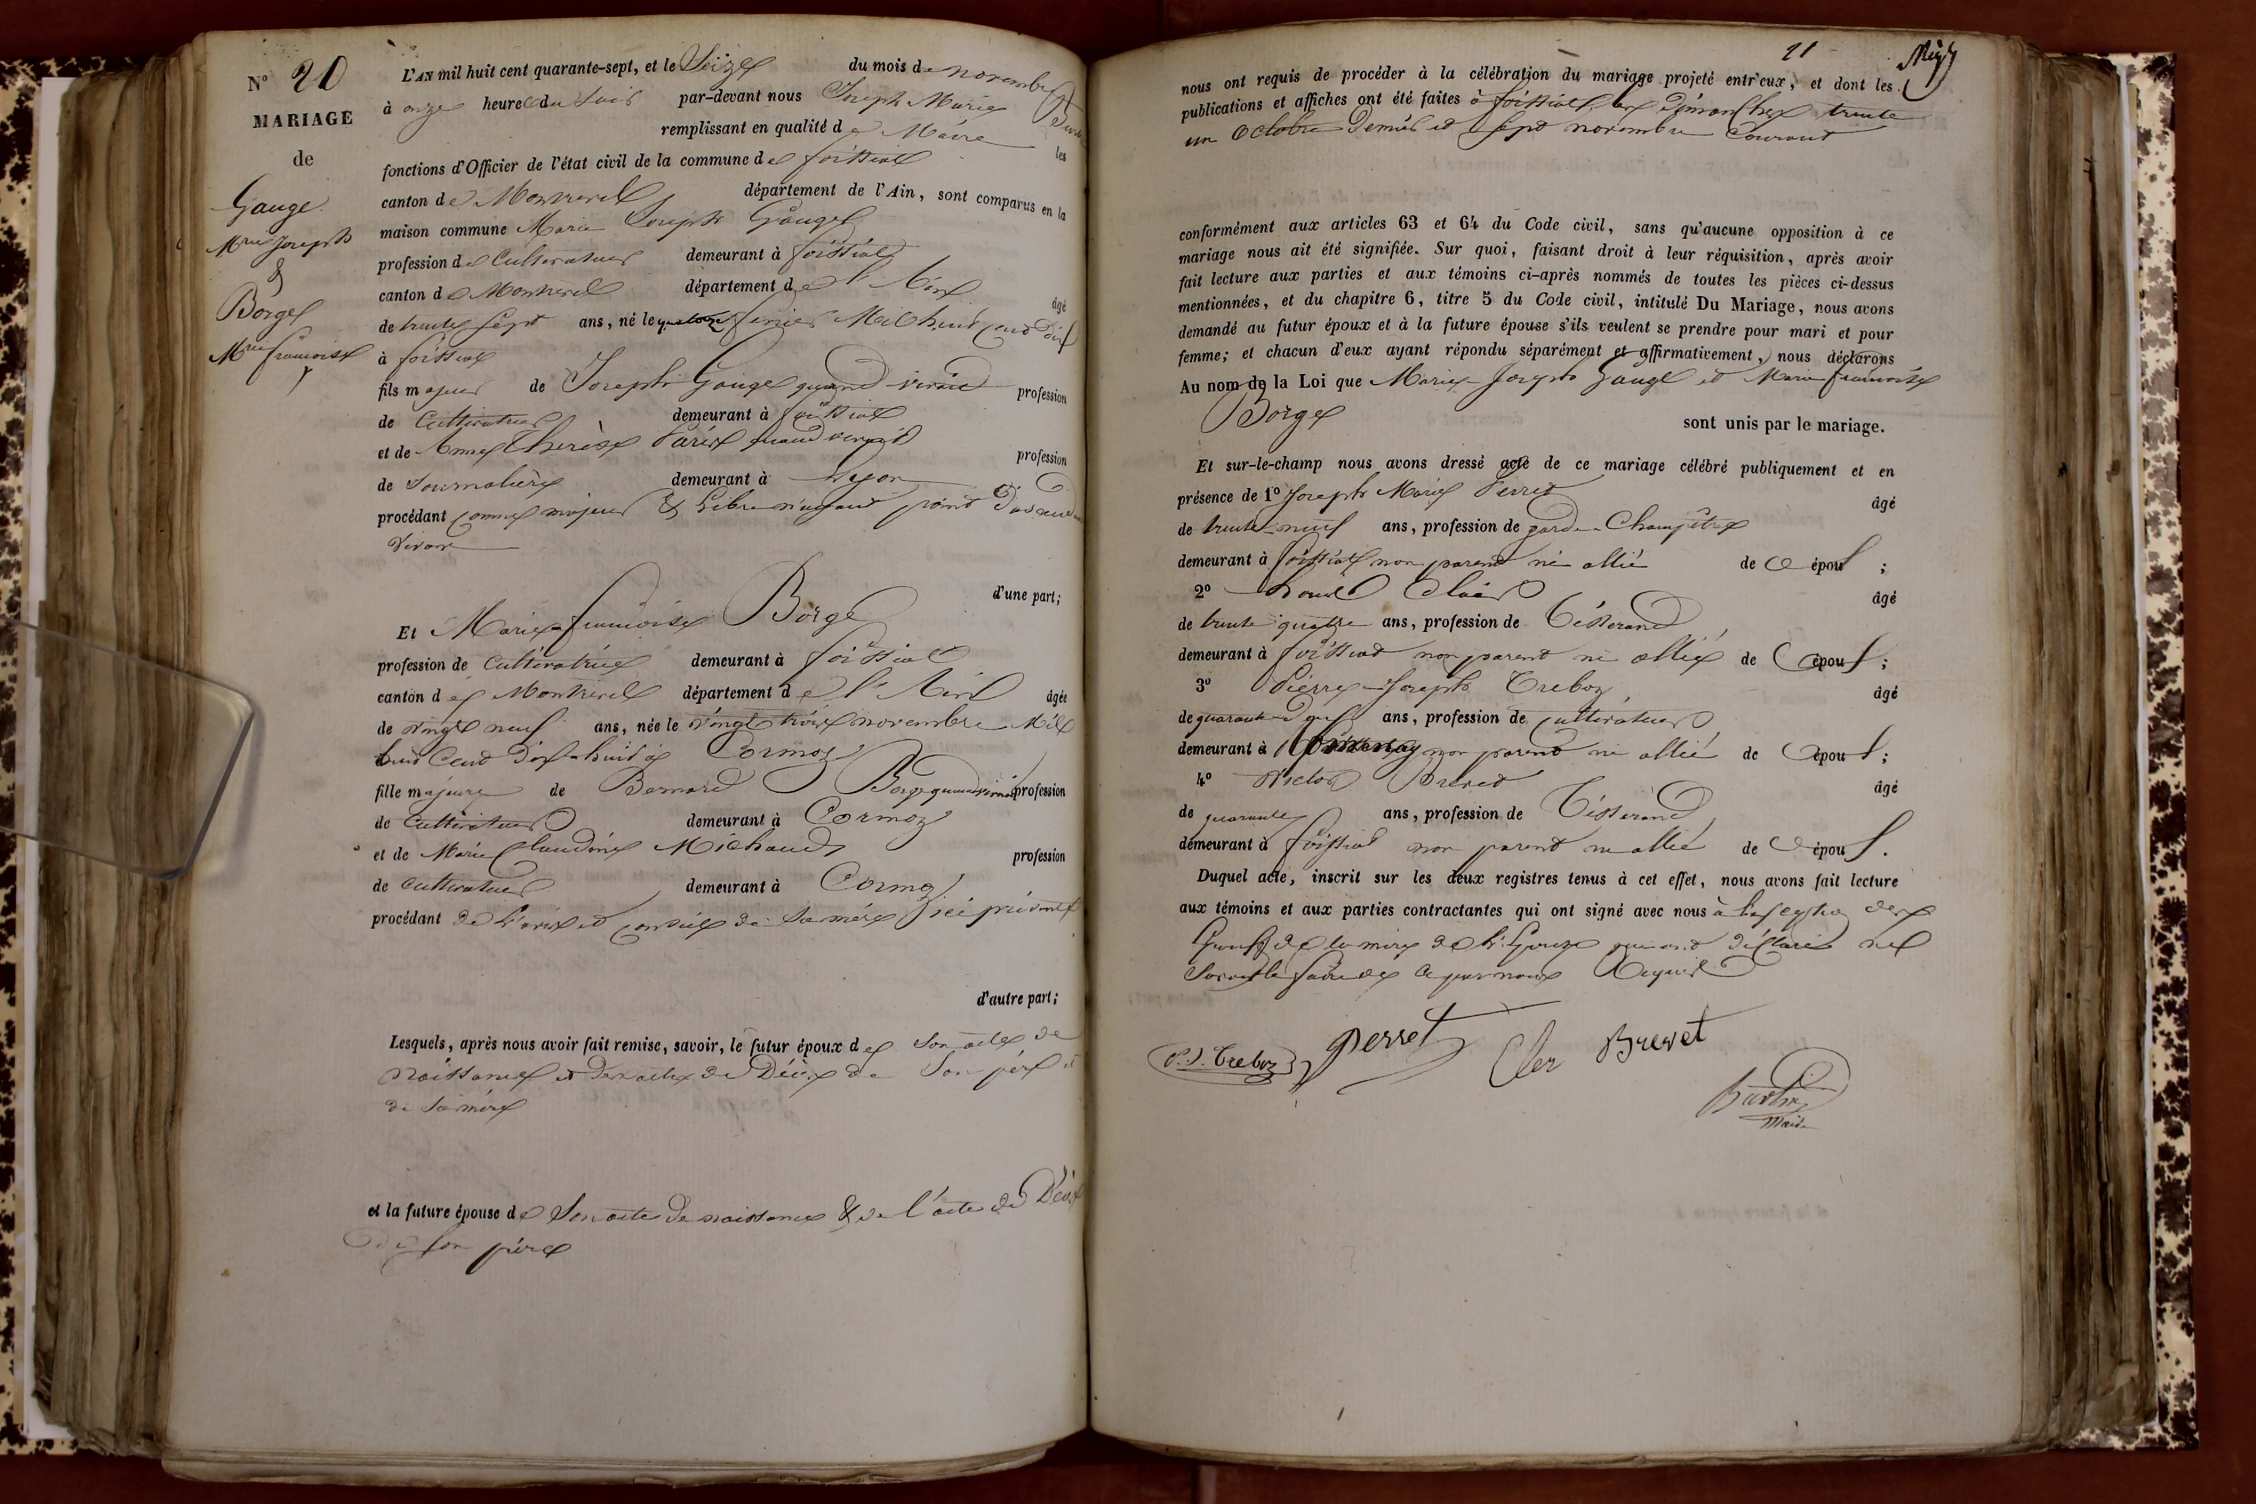 N° 20
MARIAGE
de
Gauge
Mrie Joseph
&
Borge
Mrie françoise
L'AN mil huit cent quarante-sept, et le Seize du mois de novembre
à onze heures du soir par-devant nous Joseph Marie
remplissant en qualité de Maire les
fonctions d'Officier de l'état civil de la commune de foissiat
canton de Montrevel département de l'Ain, sont comparus en la
maison commune Marie Joseph Gauge
profession de Cultivateur demeurant à foissiat
canton de Montrevel département de l'Ain âgé
de trente sept ans, né le quatorze fevrier Mil huit cent dix
à foissiat
fils majeur de Joseph Gauge quand vivait profession
de Cultivateur demeurant à foissiat
et de Anne Therèse quand vivait profession
de Journalière demeurant à Lyon
procédant comme majeur & Libre n'ayant point d'ascendant
vivant
d'une part;
Et Marie françoise Borge
profession de Cultivatrice demeurant à foissiat
canton de Montrevel département de l'Ain âgée
de vingt neuf ans, née le vingt trois novembre Mil
huit Cent dix-huit à Cormoz
fille majeure de Bernard Borge quand vivait profession
de Cultivateur demeurant à Cormoz
et de Marie Claudine Michaud profession
de Cultivateur demeurant à Cormoz
procédant de l'avis et conseil de sa mère ici présente
d'autre part;
Lesquels, après nous avoir fait remise, savoir, le futur époux de son acte de
naissance et des actes de Décès de Son père et
de sa mère
et la future épouse de Son acte de naissance & de l'acte de Décès
de Son père
21
nous ont requis de procéder à la célébration du mariage projeté entr'eux, et dont les
publications et affiches ont été faites à foissiat les dimanches trente
un Octobre dernier et sept novembre Courant
conformément aux articles 63 et 64 du Code civil, sans qu'aucune opposition à ce
mariage nous ait été signifiée. Sur quoi, faisant droit à leur réquisition, après avoir
fait lecture aux parties et aux témoins ci-après nommés de toutes les pièces ci-dessus
mentionnées, et du chapitre 6, titre 5 du Code civil, intitulé Du Mariage, nous avons
demandé au futur époux et à la future épouse s'ils veulent se prendre pour mari et pour
femme; et chacun d'eux ayant répondu séparément et affirmativement, nous déclarons
Au nom de la Loi que Marie Joseph Gauge et Marie françoise
Borge sont unis par le mariage.
Et sur-le-champ nous avons dressé acte de ce mariage célébré publiquement et en
présence de 1° Joseph Marie Perret âgé
de trente neuf ans, profession de garde Champêtre
demeurant à foissiat non parent ni allié des époux;
2° Louis Clair âgé
de trente quatre ans, profession de Tisserand
demeurant à foissiat non parent ni allié des époux;
3° Pierre Joseph Treboz âgé
de quarante ans, profession de Cultivateur
demeurant à non parent ni allié des époux;
4° Victor Brevet âgé
de quarante ans, profession de Tisserand
demeurant à foissiat non parent ni allié des époux.
Duquel acte, inscrit sur les deux registres tenus à cet effet, nous avons fait lecture
aux témoins et aux parties contractantes qui ont signé avec nous à l'exception des
Epoux & de la mère de l'Epouse qui ont déclaré ne
savoir le faire de ce par nous Requis
P. J. Treboz
Perret
Cler
Brevet
Maire